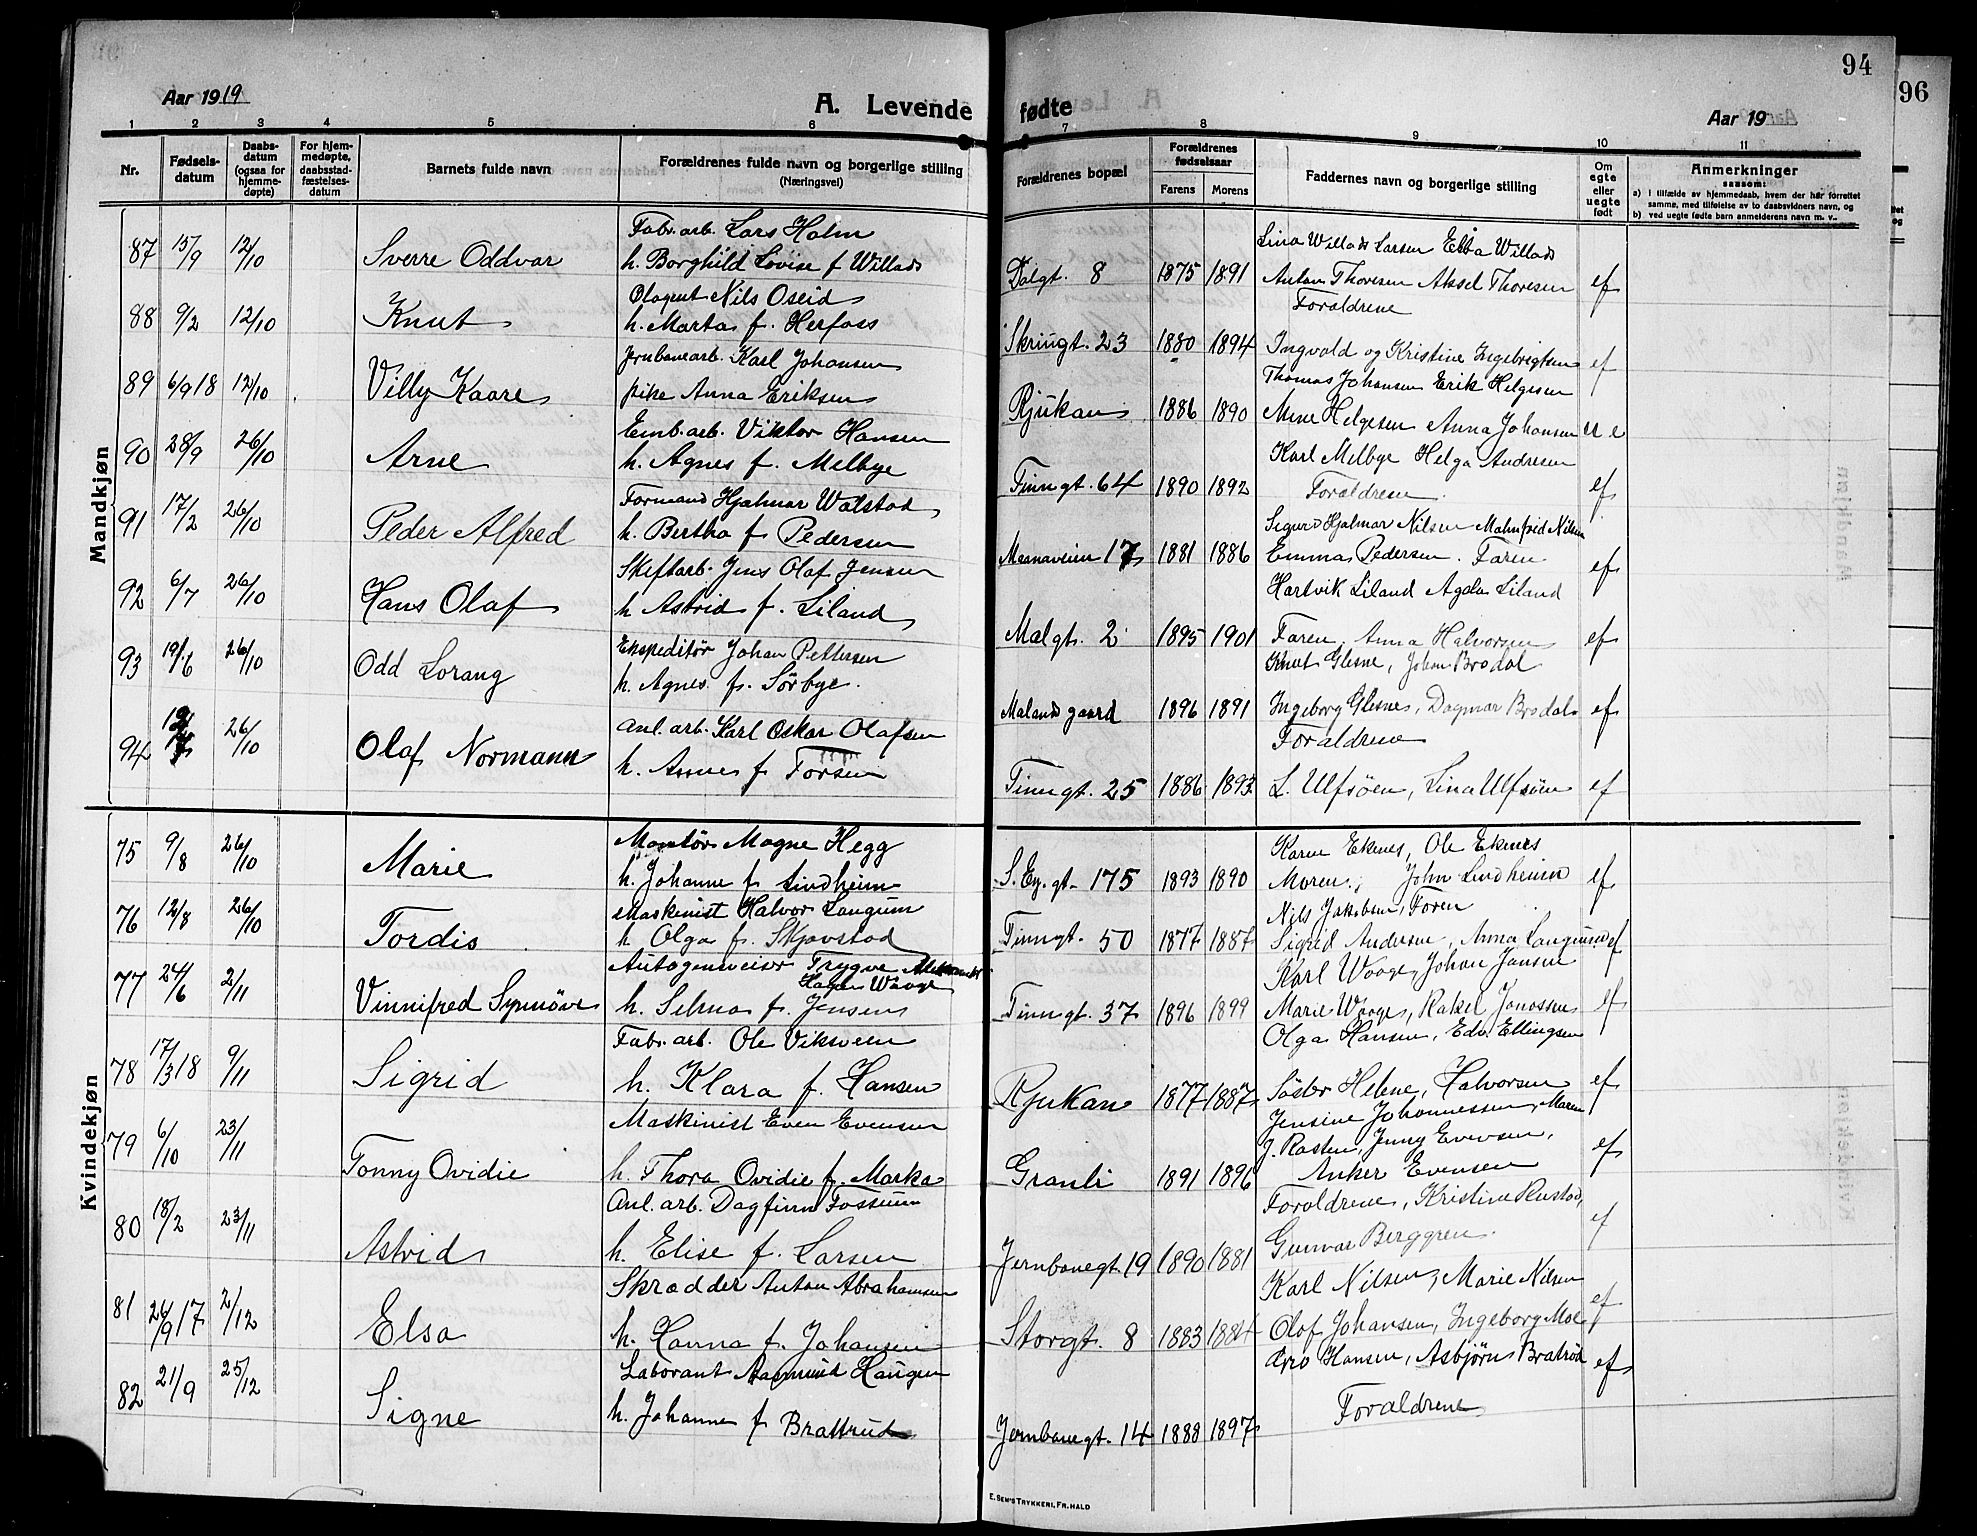 94
96
Aar 1919
A. Levende fødte
Aar 19
1 2 3 4 5 6 7 8 9 10 11
Nr.
Fødsels-
datum
Daabs-
datum
(ogsaa for
hjemme-
døpte)
For hjem-
medøpte,
daabsstad-
fæstelses-
datum
Barnets fulde navn
Forældrenes fulde navn og borgerlige stilling
(Næringsvei)
Forældrenes bopæl
Forældrenes
fødselsaar
Farens Morens
Faddernes navn og borgerlige stilling
Om
egte
eller
uegte
født
Anmerkninger
saasom:
a) i tilfælde av hjemmedaab, hvem der har forrettet
samme, med tilføielse av to daabsvidners navn, og
b) ved uegte fødte barn anmelderens navn m. v.
Mandkjøn
87 15/9 12/10 Sverre Oddvar
Fabr. arb. Lars Holm
h. Borghild Lovise f. Willads
Dalgt. 8 1875 1891
Lina Willads Larsen Ebba Willads
Anton Thoresen Aksel Thoresen ef
Foraldrene
88 9/2 12/10 Knut
Nils Oseid
h. Marta f. Herfoss
Skringt. 23 1880 1894
Ingvald og Kristine Ingebrigtsen ef
89 6/9 18 12/10 Villy Kaare
Jernbanearb. Karl Johansen
pike Anna Eriksen
Rjukan 1886 1890
Thomas Johansen Erik Helgesen
Arne Helgesen Anna Johansen u e
90 28/9 26/10 Arne
Emb. arb. Viktor Hansen
h. Agnes f. Melbye
Tinngt. 64 1890 1892
Karl Melbye Helga Andresen
Foraldrene ef
91 17/2 26/10 Peder Alfred
Formand Hjalmar Walstad
h. Bertha f. Pedersen
Maanaveien 17 1881 1886
Sigurd Hjalmar Nilsen Malmfrid Nilsen
Emma Pedersen. Faren ef
92 6/7 26/10 Hans Olaf
Skiftarb. Jens Olaf Jensen
h. Astrid f. Liland
Malgt. 2 1895 1901
Hartvik Liland Agda Liland
Faren, Anna Halvorsen ef
93 19/6 26/10 Odd Lorang
Ekspeditör Johan Pettersen
h. Agnes f. Sörbye.
Malands gaard 1896 1891
Knut Glesne, Johan Brodal
Ingeborg Glesnes, Dagmar Brodal ef
Foraldrene
94 26/10 Olaf Normann
Anl. arb. Karl Oskar Olafsen
h. Anne f. Forsen
Tinngt. 25 1886 1893
L. Ulfsöen, Lina Ulfsöen ef
Kvindekjøn
75 9/8 26/10 Marie
Montör Magne Hegg
h. Johanne f. Lindheim
S. Ey. gt. 175 1893 1890
Karen Ekenes, Ole Ekenes
Moren, John Lindheim ef
76 12/8 26/10 Tordis
Maskinist Halvor Langum
h. Olga f. Skjövstad
Tinngt. 50 1877 1887
Nils Jakobsen, Foren
Sigrid Andersen, Anna Langum ef
77 24/6 2/11 Vinnifred Synnöve
Autogensveiser Trygve
Hagen Waage
h. Selma f. Jensen
Tinngt. 37 1896 1899
Karl Waage, Johan Jansen
Marie Waage, Rakel Jonassen ef
78 17/3 18 9/11 Sigrid
Fabr. arb. Ole Viksveen
h. Klara f. Hansen
Rjukan 1877 1887
Olga Hansen, Edv. Ellingsen
Söster Helene, Halvorsen ef
79 6/10 23/11 Tonny Ovidie
Maskinist Even Evensen
h. Thora Ovidie f. Marka
Granli 1891 1896
Jensine Johannessen, Maren
J. Rasten, Jenny Evensen,
Anker Evensen ef
80 18/2 23/11 Astrid
Anl. arb. Dagfinn Fossum
h. Elise f. Larsen
Jernbanegt. 19 1890 1881
Foraldrene, Kristine Rustad,
Gunvar Berggren. ef
81 26/9 17 2/12 Elsa
Skrædder Anton Abrahamsen
h. Hanna f. Johansen
Storgt. 8 1883 1884
Karl Nilsen, Marie Nilsen
Olaf Johansen, Ingeborg Moe ef
82 21/9 25/12 Signe
Laborant Aasmund Haugen
h. Johanne f. Brattrud
Jernbanegt. 14 1888 1897
Hansen, Asbjörn Bratrud ef
Foraldrene
E. SEM'S TRYKKERI, FR.HALD